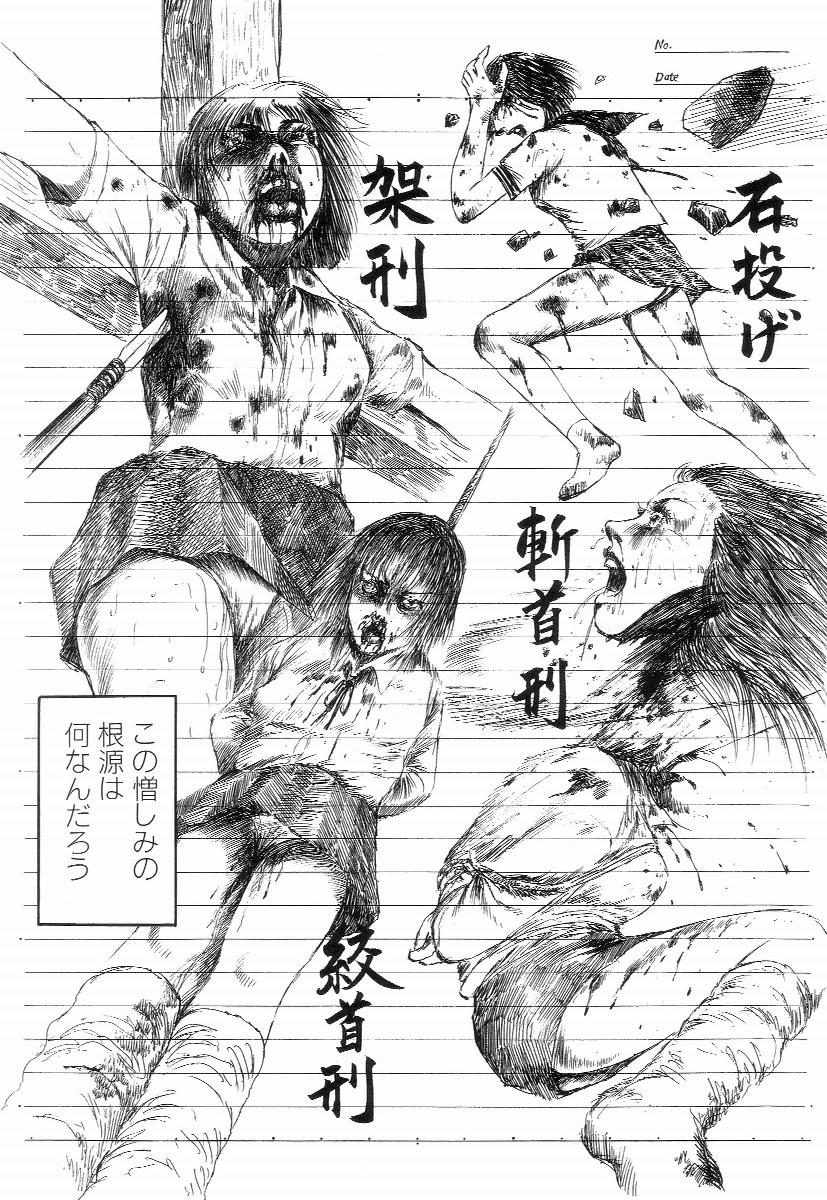 No.
Date
石投げ
架刑
斬首刑
この憎しみの
根源は
何なんだろう
絞首刑